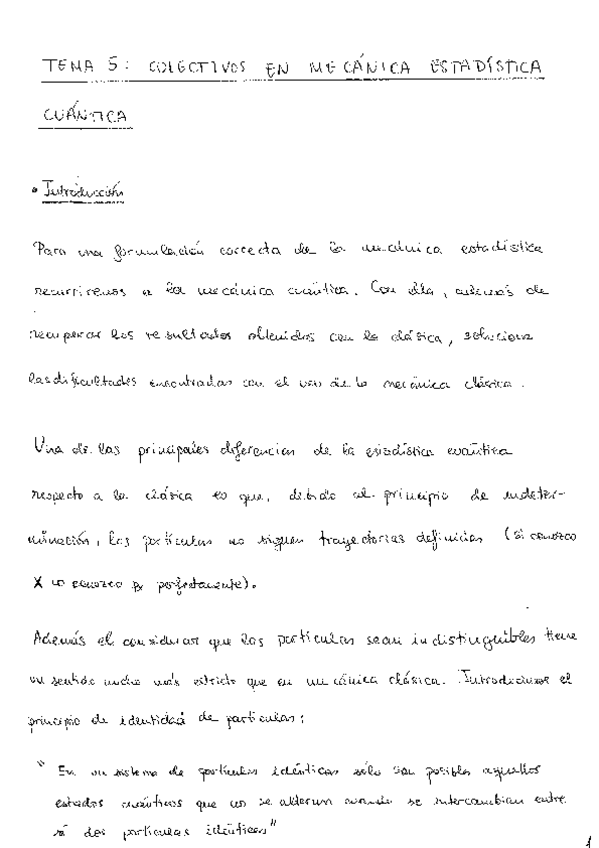 TEMA 5: COLECTIVOS EN MECÁNICA ESTADÍSTICA
CUÁNTICA
• Introducción
Para una formulación correcta de la mecánica estadística
recurriremos a la mecánica cuántica. Con ella, además de
recuperar los resultados obtenidos con la clásica, soluciona
las dificultades encontradas con el uso de la mecánica clásica.
Una de las principales diferencias de la estadística cuántica
respecto a la clásica es que, debido al principio de indeter-
minación, las partículas no siguen trayectorias definidas (si conozco
X no conozco px perfectamente).
Además el considerar que las partículas sean indistinguibles tiene
un sentido mucho más estricto que en mecánica clásica. Introducimos el
principio de identidad de partículas:
" En un sistema de partículas idénticas sólo son posibles aquellos
estados cuánticos que no se alteran cuando se intercambian entre
sí dos partículas idénticas"
1